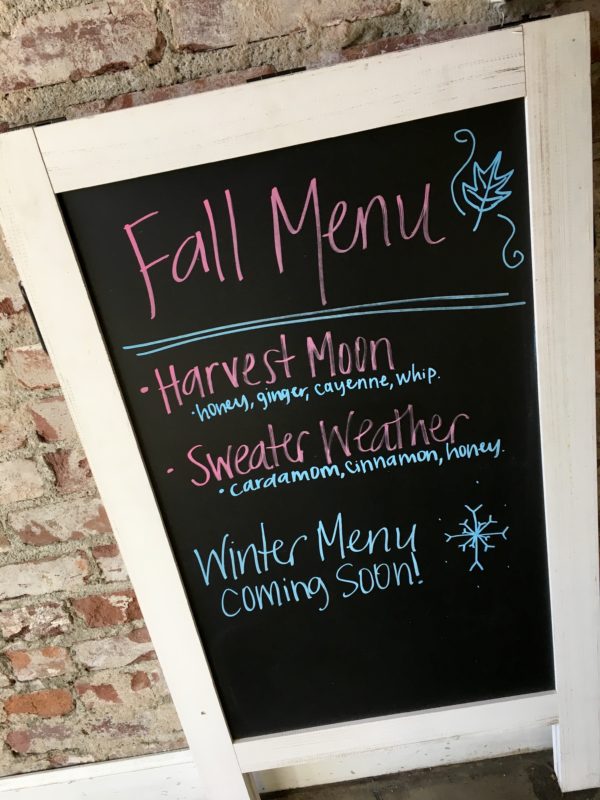 Fall Menu
• Harvest Moon
• honey, ginger, cayenne, whip.
• Sweater Weather
• cardamom, cinnamon, honey.
Winter Menu
coming Soon!